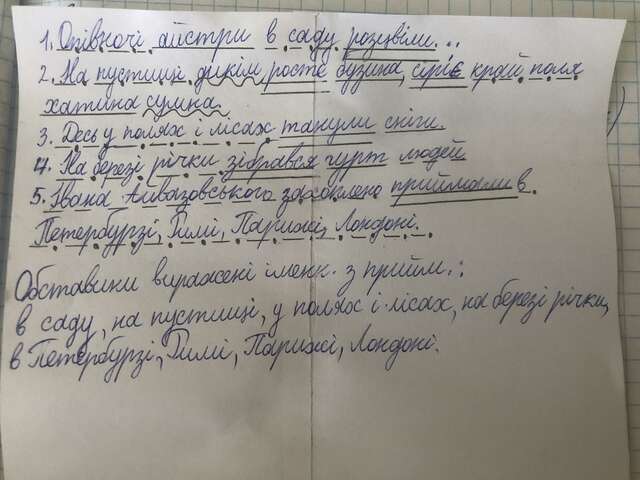 1. Опівночі айстри в саду розцвіли...
2. На пустищі дикім росте бузина, сіріє край поля
хатина сумна.
3. Десь у полях і лісах танули сніги.
4. На березі річки зібрався гурт людей
5. Івана Айвазовського захоплено приймали в
Петербурзі, Римі, Парижі, Лондоні.
Обставини виражені іменк. з прийм.:
в саду, на пустищі, у полях і лісах, на березі річки,
в Петербурзі, Римі, Парижі, Лондоні.